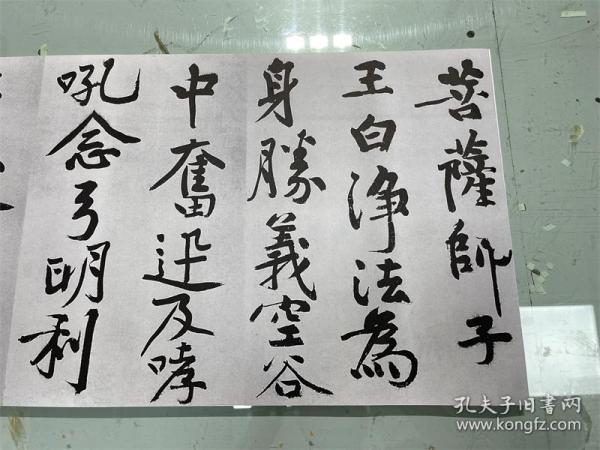 菩薩師子
王白淨法為
身勝義空谷
中奮迅及哮
吼念弓明利
孔夫子旧书网
www.kongfz.com